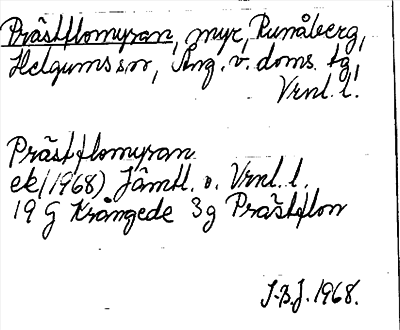 Prästflomyran, myr, Runåberg,
Helgums sn, Ång. v. doms. tg,
Vrnl. l.
Prästflomyran
ek/1968) Jämtl. o. Vrnl. l.
19 G Krångede 3g Prästflon
J.B.J. 1968.